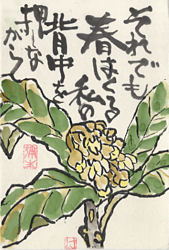 それでも
春はくる
私の
背中を
押しな
がら